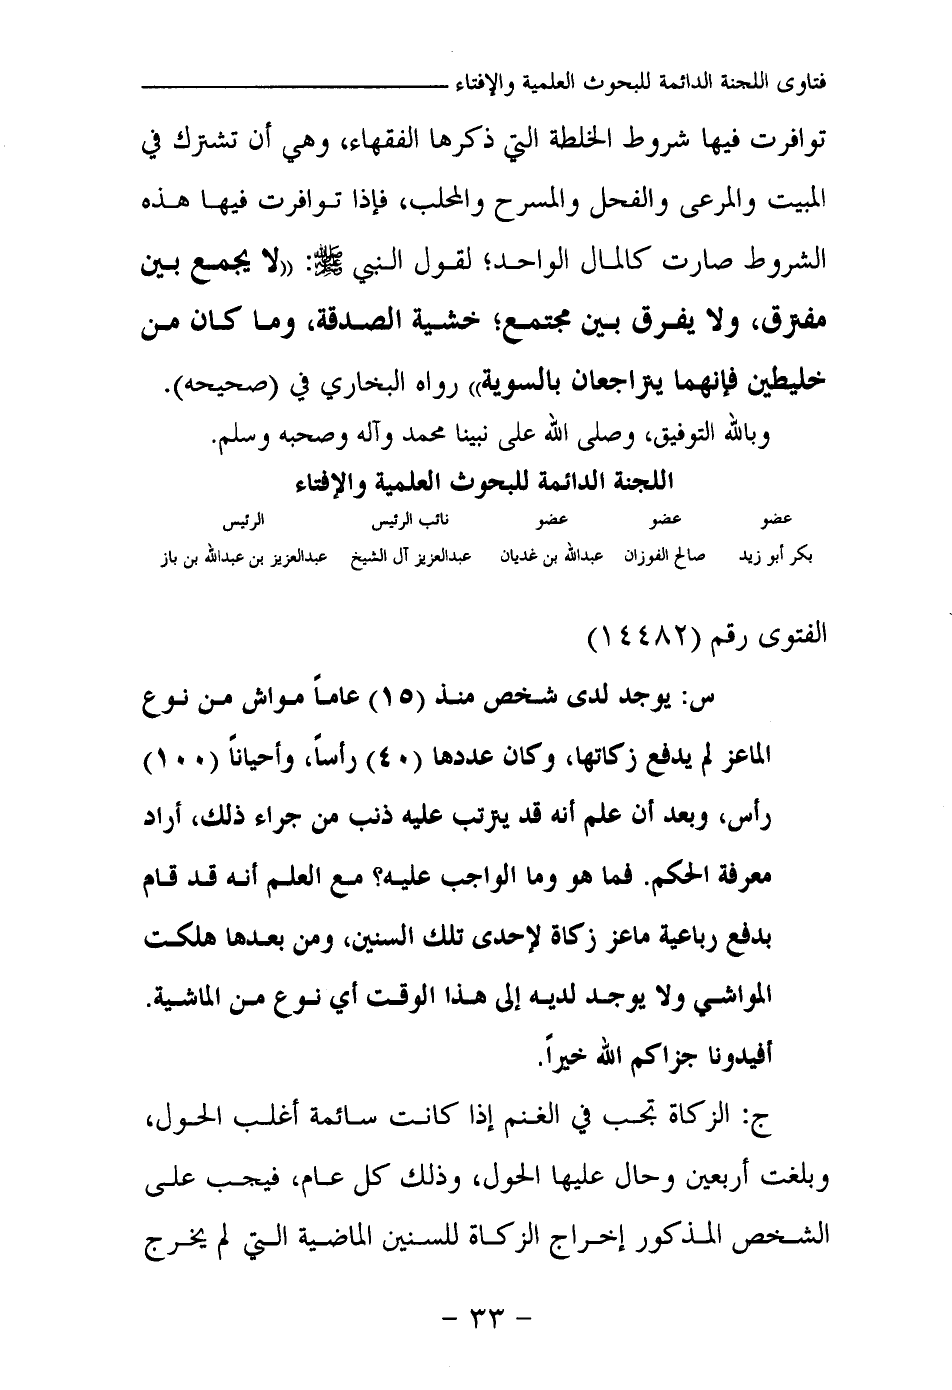 فتاوى اللجنة الدائمة للبحوث العلمية والإفتاء
توافرت فيها شروط الخلطة التي ذكرها الفقهاء، وهي أن تشترك في
المبيت والمرعى والفحل والمسرح والمحلب، فإذا توافرت فيها هذه
الشروط صارت كالمال الواحد؛ لقول النبي ﷺ: «لا يجمع بين
مفترق، ولا يفرق بين مجتمع؛ خشية الصدقة، وما كان من
خليطين فإنهما يتراجعان بالسوية» رواه البخاري في (صحيحه).
وبالله التوفيق، وصلى الله على نبينا محمد وآله وصحبه وسلم.
اللجنة الدائمة للبحوث العلمية والإفتاء
عضو عضو عضو نائب الرئيس الرئيس
بكر أبو زيد صالح الفوزان عبدالله بن غديان عبدالعزيز آل الشيخ عبدالعزيز بن عبدالله بن باز
الفتوى رقم (١٤٤٨٢)
س: يوجد لدى شخص منذ (١٥) عاماً مواش من نوع
الماعز لم يدفع زكاتها، وكان عددها (٤٠) رأساً، وأحياناً (١٠٠)
رأس، وبعد أن علم أنه قد يترتب عليه ذنب من جراء ذلك، أراد
معرفة الحكم. فما هو وما الواجب عليه؟ مع العلم أنه قد قام
بدفع رباعية ماعز زكاة لإحدى تلك السنين، ومن بعدها هلكت
المواشي ولا يوجد لديه إلى هذا الوقت أي نوع من الماشية.
أفيدونا جزاكم الله خيراً.
ج: الزكاة تجب في الغنم إذا كانت سائمة أغلب الحول،
وبلغت أربعين وحال عليها الحول، وذلك كل عام، فيجب على
الشخص المذكور إخراج الزكاة للسنين الماضية التي لم يخرج
- ٣٣ -